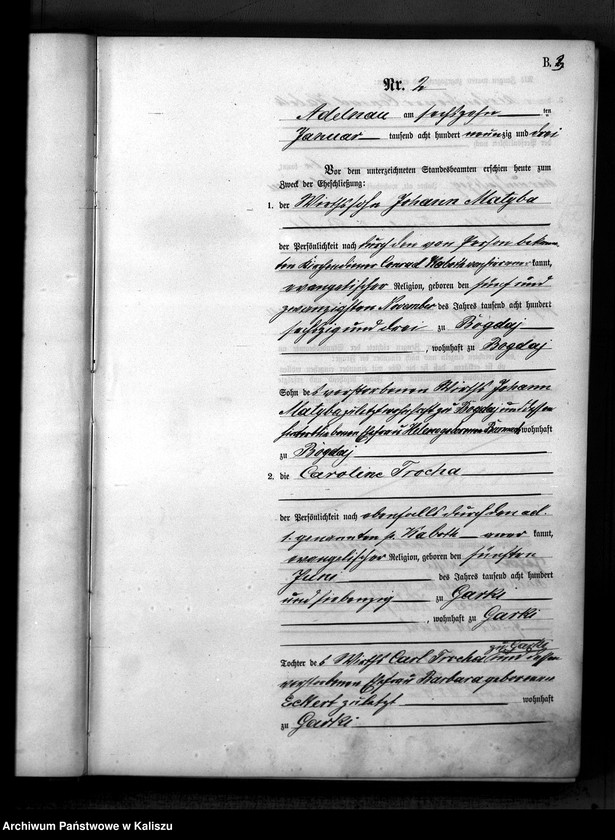 B.
Nr. 2
Adelnau am sechszehn ten
Januar tausend acht hundert neunzig und drei
Vor dem unterzeichneten Standesbeamten erschien heute zum
Zweck der Eheschließung:
1. der Wirthssohn Johann Matyba
der Persönlichkeit nach durch den von Person bekann-
ten Kirchendiener Conrad kannt,
evangelischer Religion, geboren den fünf und
zwanzigsten November des Jahres tausend acht hundert
sechszig und drei zu Bogdaj
, wohnhaft zu Bogdaj
Sohn des verstorbenen Wirth Johann
Matyba zuletzt wohnhaft zu Bogdaj und dessen
hinterbliebenen Ehefrau geborenen wohnhaft
zu Bogdaj
2. die Caroline Trocha
der Persönlichkeit nach ebenfalls durch den ad
1. genannten kannt,
evangelischer Religion, geboren den fünften
Juni des Jahres tausend acht hundert
und siebenzig zu Garki
, wohnhaft zu Garki
zu Garki
Tochter des Wirths Carl Trocha und dessen
verstorbenen Ehefrau Barbara geborenen
Eckert zuletzt wohnhaft
zu Garki
Archiwum Państwowe w Kaliszu